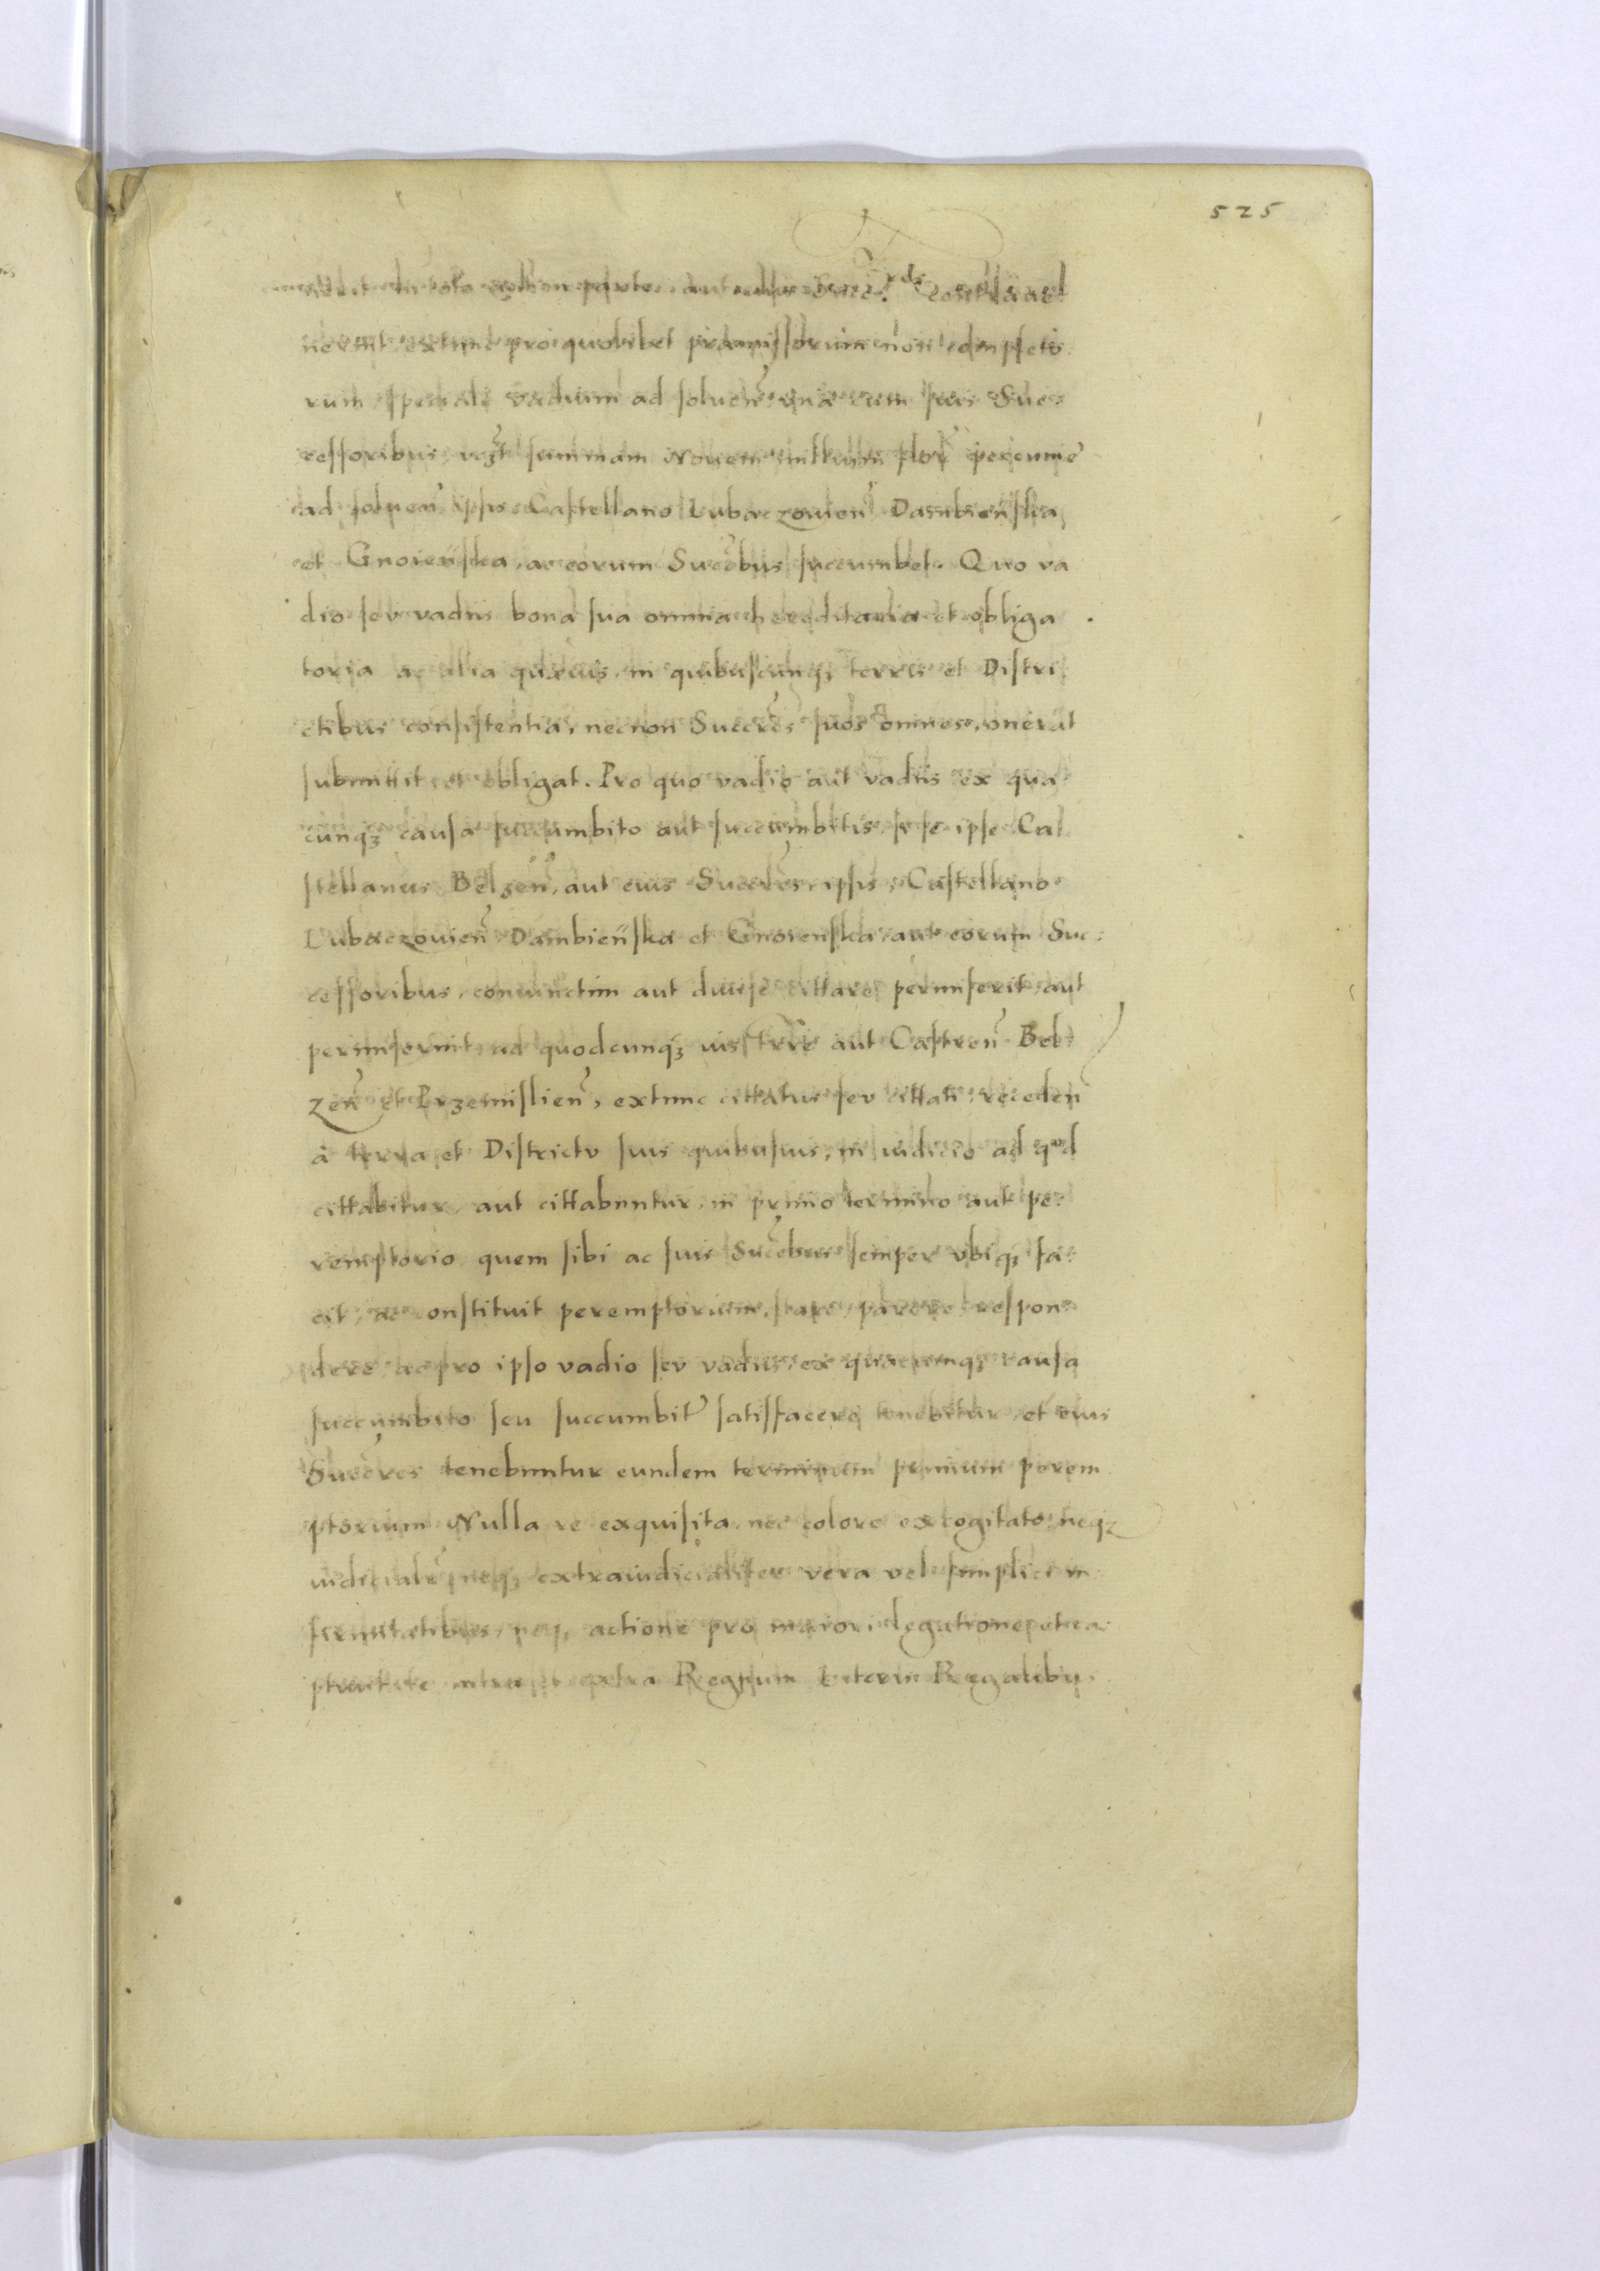 525
in toto vel in parte, aut
nerint extunc pro quolibet præmissorum non completo
rum speciale vadium ad soluen̄ una cum suis Suc
cessoribus, vꝫt summam Novem millium flor pecunie
ad soluen̄ ipsis Castellano Lubaczouien̄ Dambieńska
et Gnoieńska, ac eorum Succ̄bus succumbet. Quo va
dio seu vadiis bona sua omnia hereditaria et obliga
toria ac alia quæuis, in quibuscunqꝫ terris et Distri
ctibus consistentia, necnon Succ̄res suos omnes, onerat
submittit et obligat. Pro quo vadio aut vadiis ex qua
cunqꝫ causa succumbito aut succumbitis, si se ipse Ca
stellanus Belzen̄, aut eius Succ̄res, ipsis Castellano
Lubaczouien̄ Dambieńska et Gnoienska, aut eorum Suc
cessoribus, coniunctim aut diuise cittare permiserit, aut
permiserint, ad quodcunqꝫ ius tr̄re aut Castren̄ Bel
zen̄ et Przemislien̄, extunc cittatus seu cittati, receden̄
à terra et Districtu suis quibusuis, in iudicio ad qod
cittabitur, aut cittabuntur, in primo termino aut pe
remptorio quem sibi ac suis Succ̄bus semper vbiqꝫ fa
cit, ac constituit peremptorium, stare, parere respon
dere ac pro ipso vadio seu vadiis, ex quacunqꝫ causa
succumbito seu succumbit̄ satisfacere tenebitur, et eius
Succ̄res tenebuntur eundem terminum primum perem
ptorium Nulla re exquisita, nec colore excogitato, neqꝫ
iudicialr̄ neqꝫ extraiudicialiter vera vel simplici in
firmitatibus, neqꝫ actione pro maiori, legatione
intra et extra Regnum Literis Regalibꝫ